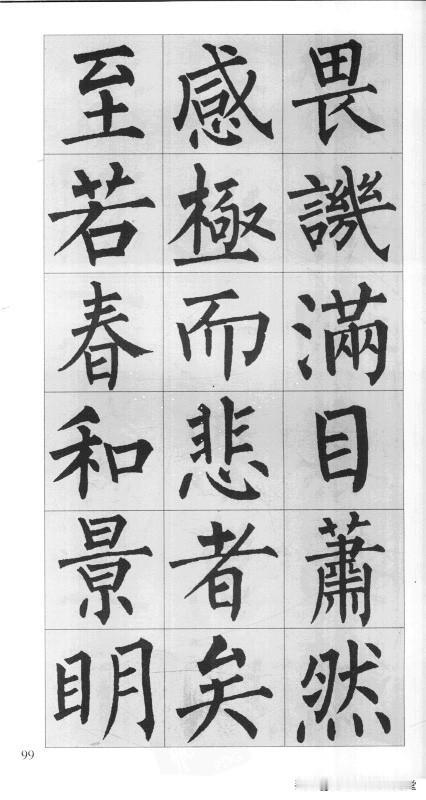 畏譏滿目蕭然
感極而悲者矣
至若春和景明
99